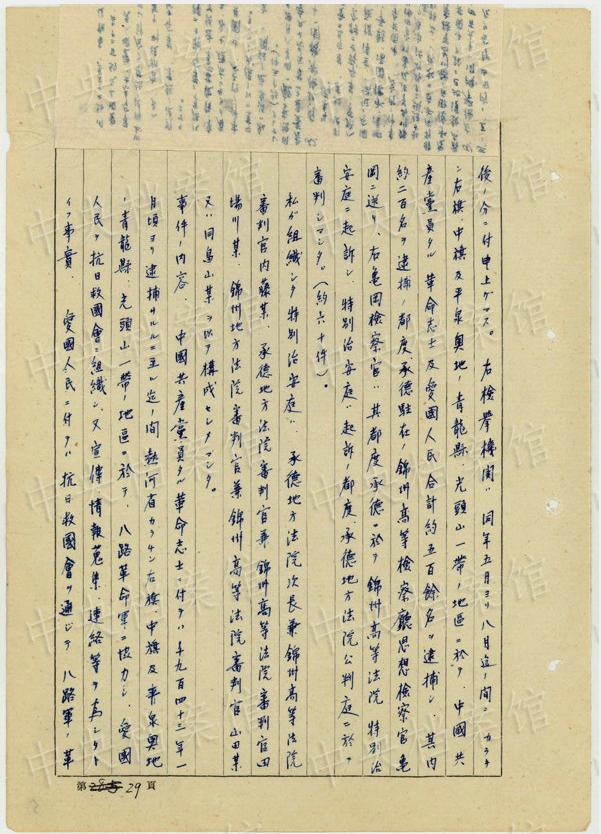 後ノ分ニ付申上ゲマス。 右檢擧機関ハ 同年五月ヨリ八月迄ノ間ニ カラチ
ン右旗中旗及平泉奥地ノ青龍縣、光頭山一帶ノ地區ニ於テ、中國共
産黨員タル革命志士及愛國人民合計約五百餘名ヲ逮捕シ、其内
約二百名ヲ逮捕ノ都度、承德駐在ノ錦州高等檢察廳思想檢察官亀
岡ニ送リ、右亀田檢察官ハ其都度承德ニ於テ錦州高等法院特別治
安庭ニ起訴シ、特別治安庭ハ起訴ノ都度、承德地方法院公判庭ニ於テ
審判シマシタ。(約六十件)。
私ガ組織シタ特別治安庭ハ、承德地方法院次長兼錦州高等法院
審判官内藤某、承德地方法院審判官兼錦州高等法院審判官田
場川某、錦州地方法院審判官兼錦州高等法院審判官山田某
又ハ同島山某ヲ以テ構成セレタマシタ。
事件ノ内容、中國共産黨員タル革命志士ニ付テハ千九百四十三年一
月頃ヨリ逮捕サルルニ至ル迄ノ間熱河省カラチン右旗中旗及平泉奥地
ノ青龍縣、光頭山一帶ノ地區ニ於テ、八路革命軍ニ協力シ、愛國
人民ヲ抗日救國會ニ組織シ、又宣傳情報蒐集、連絡等ヲ為シタト
イフ事實、愛國人民ニ付テハ抗日救國會ヲ通ジテ八路軍ノ革
第29頁
中央档案馆